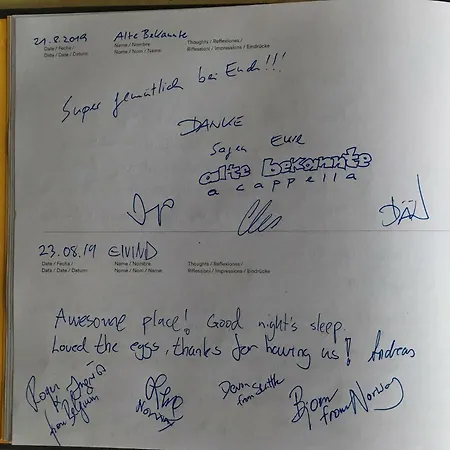 21.8.2019 Alte Bekannte
Date / Fecha / Name / Nombre Thoughts / Reflexiones /
Date / Data / Datum: Name / Nom / Name: Riflessioni / Impressions / Eindrücke
Super gemütlich bei Euch!!!
DANKE
Sagen Eure
alte bekannte
a cappella
DÄN
23.08.19 EIVIND
Date / Fecha / Name / Nombre Thoughts / Reflexiones /
Date / Data / Datum: Name / Nom / Name: Riflessioni / Impressions / Eindrücke
Awesome place! Good night's sleep.
Loved the eggs, thanks for having us! Andreas
Roger
Ingrid
from Belgium
Norway
from Seattle
Bjørn
from Norway